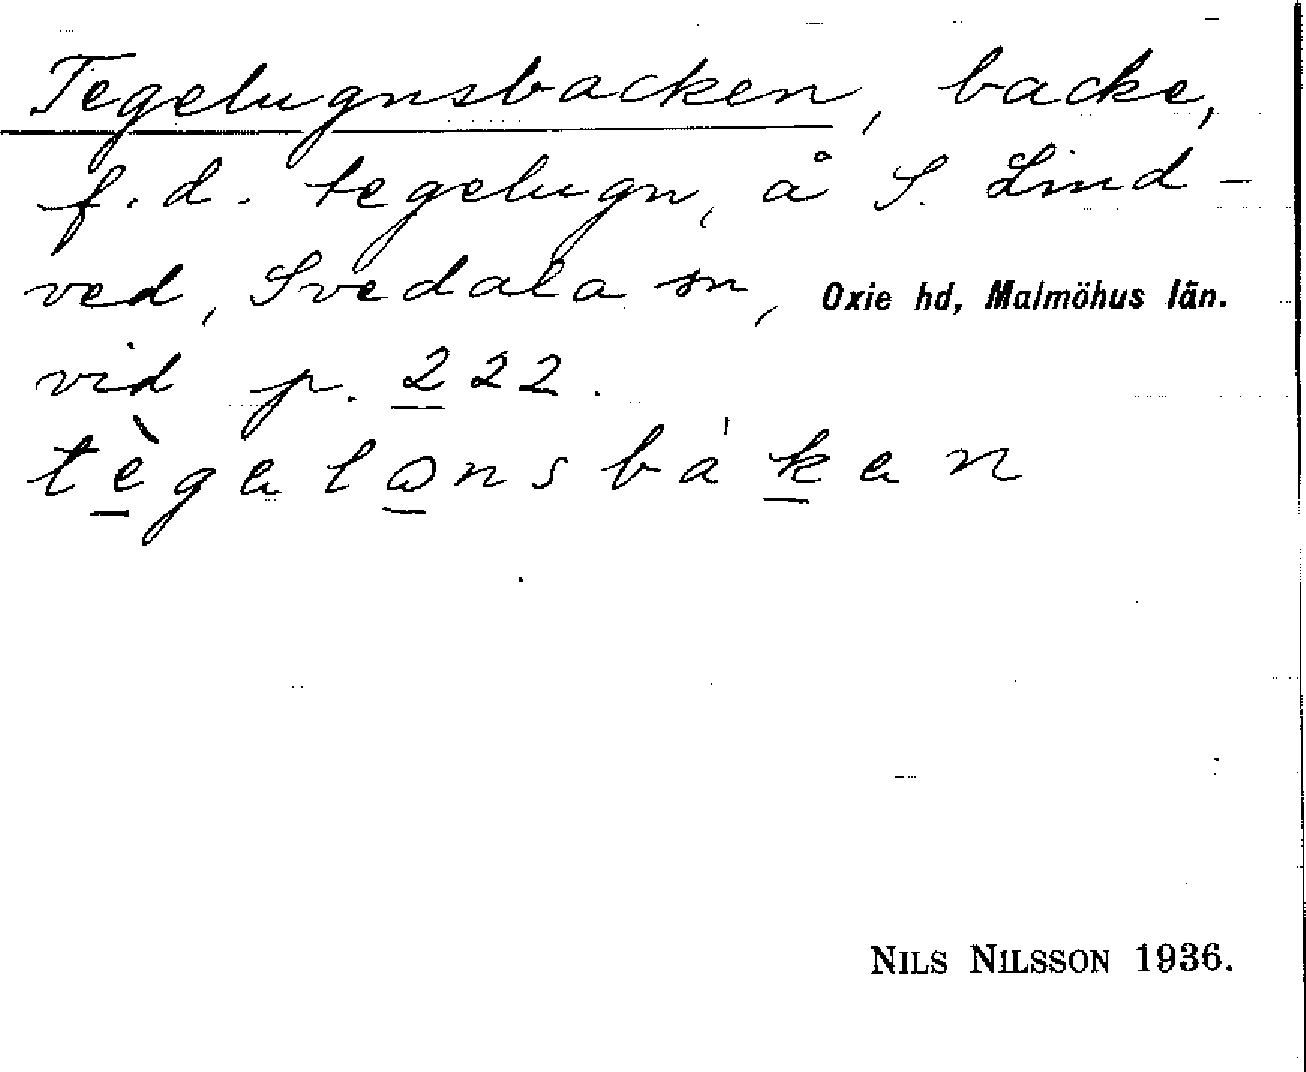 Tegelugnsbacken, backe,
f.d. tegelugn, å S. Lind-
ved, Svedala sn, Oxie hd, Malmöhus län.
vid p. 222.
tègəlɷnsbákən
NILS NILSSON 1936.